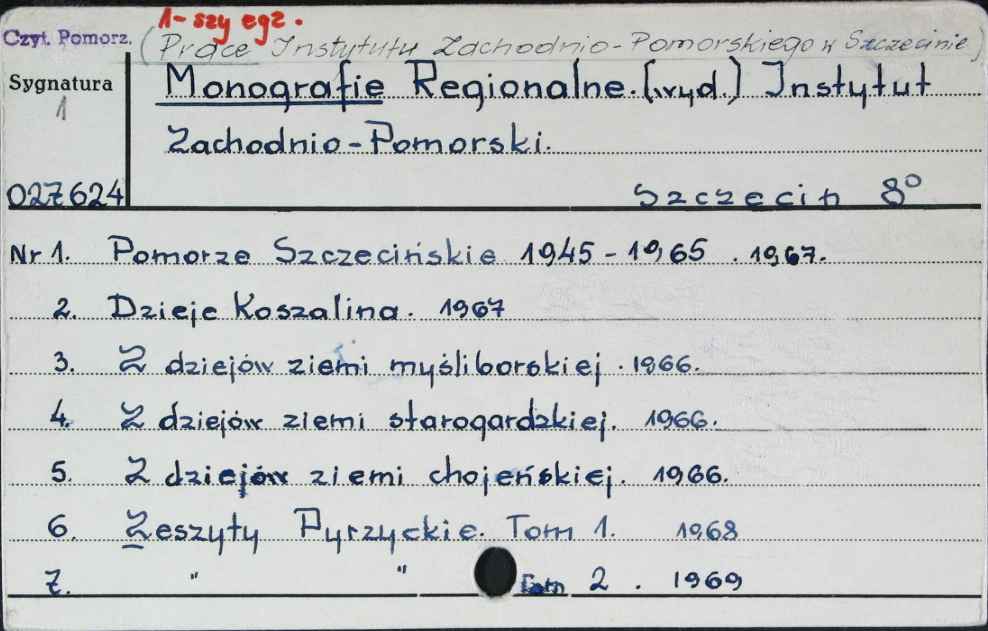 1-szy egz.
Czyt. Pomorz. (Prace Instytutu Zachodnio-Pomorskiego w Szczecinie)
Sygnatura Monografie Regionalne. [wyd.] Instytut
1
Zachodnio-Pomorski.
027624 Szczecin 8°
Nr 1. Pomorze Szczecińskie 1945-1965. 1967.
2. Dzieje Koszalina. 1967
3. Z dziejów ziemi myśliborskiej. 1966.
4. Z dziejów ziemi starogardzkiej. 1966.
5. Z dziejów ziemi chojeńskiej. 1966.
6. Zeszyty Pyrzyckie. Tom 1. 1968
7. " " Tom 2. 1969